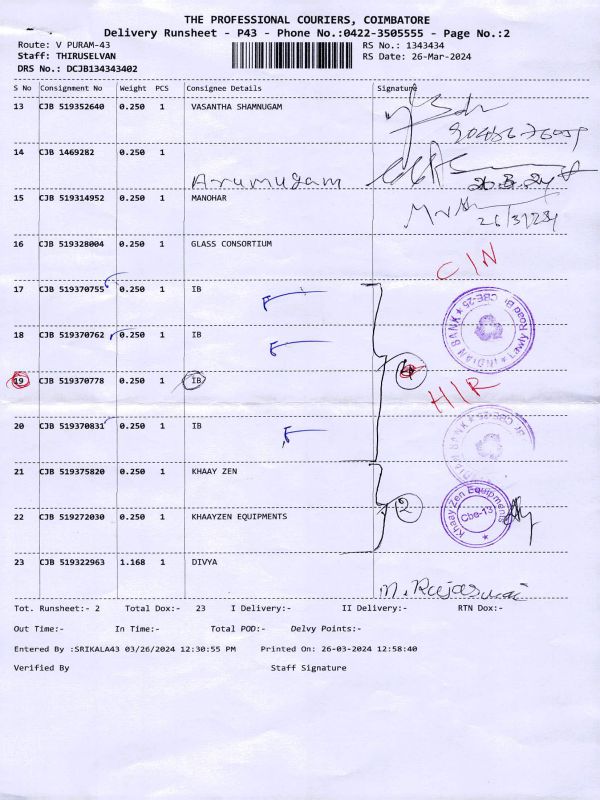 THE PROFESSIONAL COURIERS, COIMBATORE
Delivery Runsheet - P43 - Phone No.:0422-3505555 - Page No.:2
Route: V PURAM-43 RS No.: 1343434
Staff: THIRUSELVAN RS Date: 26-Mar-2024
DRS No.: DCJB134343402
S No Consignment No Weight PCS Consignee Details Signature
13 CJB 519352640 0.250 1 VASANTHA SHAMNUGAM
14 CJB 1469282 0.250 1
Arumugam
15 CJB 519314952 0.250 1 MANOHAR
16 CJB 519328004 0.250 1 GLASS CONSORTIUM
C/N
17 CJB 519370755 0.250 1 IB
INDIAN BANK ★ Lawly Road Br. CBE-25 ★
18 CJB 519370762 0.250 1 IB
19 CJB 519370778 0.250 1 IB
H/R
20 CJB 519370831 0.250 1 IB
21 CJB 519375820 0.250 1 KHAAY ZEN
22 CJB 519272030 0.250 1 KHAAYZEN EQUIPMENTS
2
Khaay Zen Equipments Cbe-13 ★
23 CJB 519322963 1.168 1 DIVYA
Tot. Runsheet:- 2 Total Dox:- 23 I Delivery:- II Delivery:- RTN Dox:-
Out Time:- In Time:- Total POD:- Delvy Points:-
Entered By :SRIKALA43 03/26/2024 12:30:55 PM Printed On: 26-03-2024 12:58:40
Verified By Staff Signature